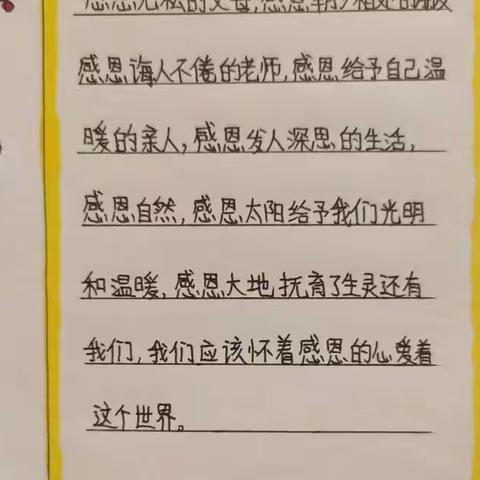 感恩无私的父母,感恩朝夕相处的
感恩诲人不倦的老师,感恩给予自己温
暖的亲人,感恩发人深思的生活,
感恩自然,感恩太阳给予我们光明
和温暖,感恩大地抚育了生灵还有
我们,我们应该怀着感恩的心爱着
这个世界。